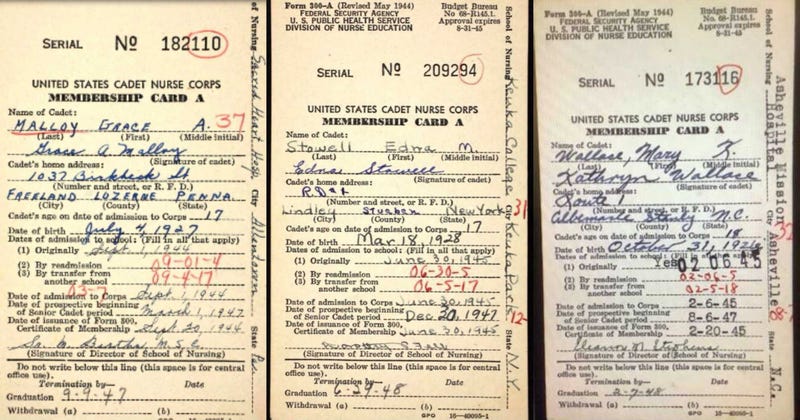 SERIAL No 182110
UNITED STATES CADET NURSE CORPS
MEMBERSHIP CARD A
Name of Cadet: 37
MALLOY GRACE A.
(Last) (First) (Middle initial)
Grace A Malloy
(Signature of cadet)
Cadet's home address:
1037 Birkbeck St
(Number and street, or R. F. D.)
FREELAND LUZERNE PENNA.
(City) (County) (State)
Cadet's age on date of admission to Corps 17
Date of birth July 7, 1927
Dates of admission to school: (Fill in all that apply)
(1) Originally Sept 1, 1944
(2) By readmission 09-01-4
(3) By transfer from another school 09-4-17
03-7
Date of admission to Corps Sept. 1, 1944
Date of prospective beginning of Senior Cadet period March 1, 1947
Date of issuance of Form 300, Certificate of Membership Sept. 20, 1944
(Signature of Director of School of Nursing)
Do not write below this line (this space is for central office use).
Termination by— Date
Graduation 9-9-47
Withdrawal (a) (b)
of Nursing Sacred Heart Hosp. City Allentown State Pa
Form 300-A (Revised May 1944)
FEDERAL SECURITY AGENCY
U. S. PUBLIC HEALTH SERVICE
DIVISION OF NURSE EDUCATION
Budget Bureau
No. 68-R145.1.
Approval expires
8-31-45
SERIAL No 209294
UNITED STATES CADET NURSE CORPS
MEMBERSHIP CARD A
Name of Cadet:
Stowell Edna M.
(Last) (First) (Middle initial)
Edna Stowell
(Signature of cadet)
Cadet's home address
R.D.#1
(Number and street, or R. F. D.)
Lindley Steuben New York 31
(City) (County) (State)
Cadet's age on date of admission to Corps 17
Date of birth Mar. 18, 1928
Dates of admission to school: (Fill in all that apply)
(1) Originally June 30, 1945
(2) By readmission 06-30-5
(3) By transfer from another school 06-5-17
Date of admission to Corps June 30, 1945
Date of prospective beginning of Senior Cadet period Dec. 30, 1947 12
Date of issuance of Form 300, Certificate of Membership June 30, 1945
(Signature of Director of School of Nursing)
Do not write below this line (this space is for central office use).
Termination by— Date
Graduation 6-29-48
Withdrawal (a) (b)
GPO 16-40095-1
School of Nursing Keuka College City Keuka Park State N.Y.
Form 300-A (Revised May 1944)
FEDERAL SECURITY AGENCY
U. S. PUBLIC HEALTH SERVICE
DIVISION OF NURSE EDUCATION
Budget Bureau
No. 68-R145.1.
Approval expires
8-31-45
SERIAL No 173116
UNITED STATES CADET NURSE CORPS
MEMBERSHIP CARD A
Name of Cadet:
Wallace, Mary K.
(Last) (First) (Middle initial)
Kathryn Wallace
(Signature of cadet)
Cadet's home address:
Route 1
(Number and street, or R. F. D.)
Albemarle Stanly N.C. 32
(City) (County) (State)
Cadet's age on date of admission to Corps 18
Date of birth October 31, 1926
Dates of admission to school: (Fill in all that apply)
(1) Originally Yes 02 06 45
(2) By readmission 02-06-5
(3) By transfer from another school 02-5-18
Date of admission to Corps 2-6-45
Date of prospective beginning of Senior Cadet period 8-6-47
Date of issuance of Form 300, Certificate of Membership 2-20-45
(Signature of Director of School of Nursing)
Do not write below this line (this space is for central office use).
Termination by— Date
Graduation 2-7-48
Withdrawal (a) (b)
GPO 16-40095-1
School of Nursing Asheville Mission Hospital City Asheville State N.C.